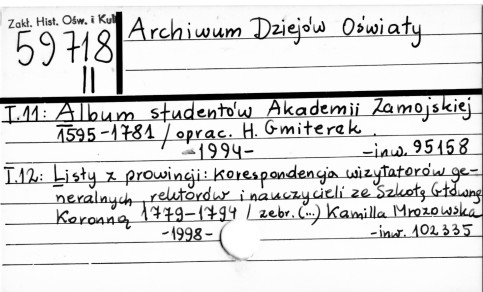 Zakł. Hist. Ośw. i Kul
59718
II
Archiwum Dziejów Oświaty
T.11: Album studentów Akademii Zamojskiej
1595-1781 / oprac. H. Gmiterek.
-1994- -inw. 95158
T.12: Listy z prowincji: korespondencja wizytatorów ge-
neralnych, rektorów i nauczycieli ze Szkołą Główną
Koronną 1779-1794 / zebr. (...) Kamilla Mrozowska
-1998- -inw. 102335